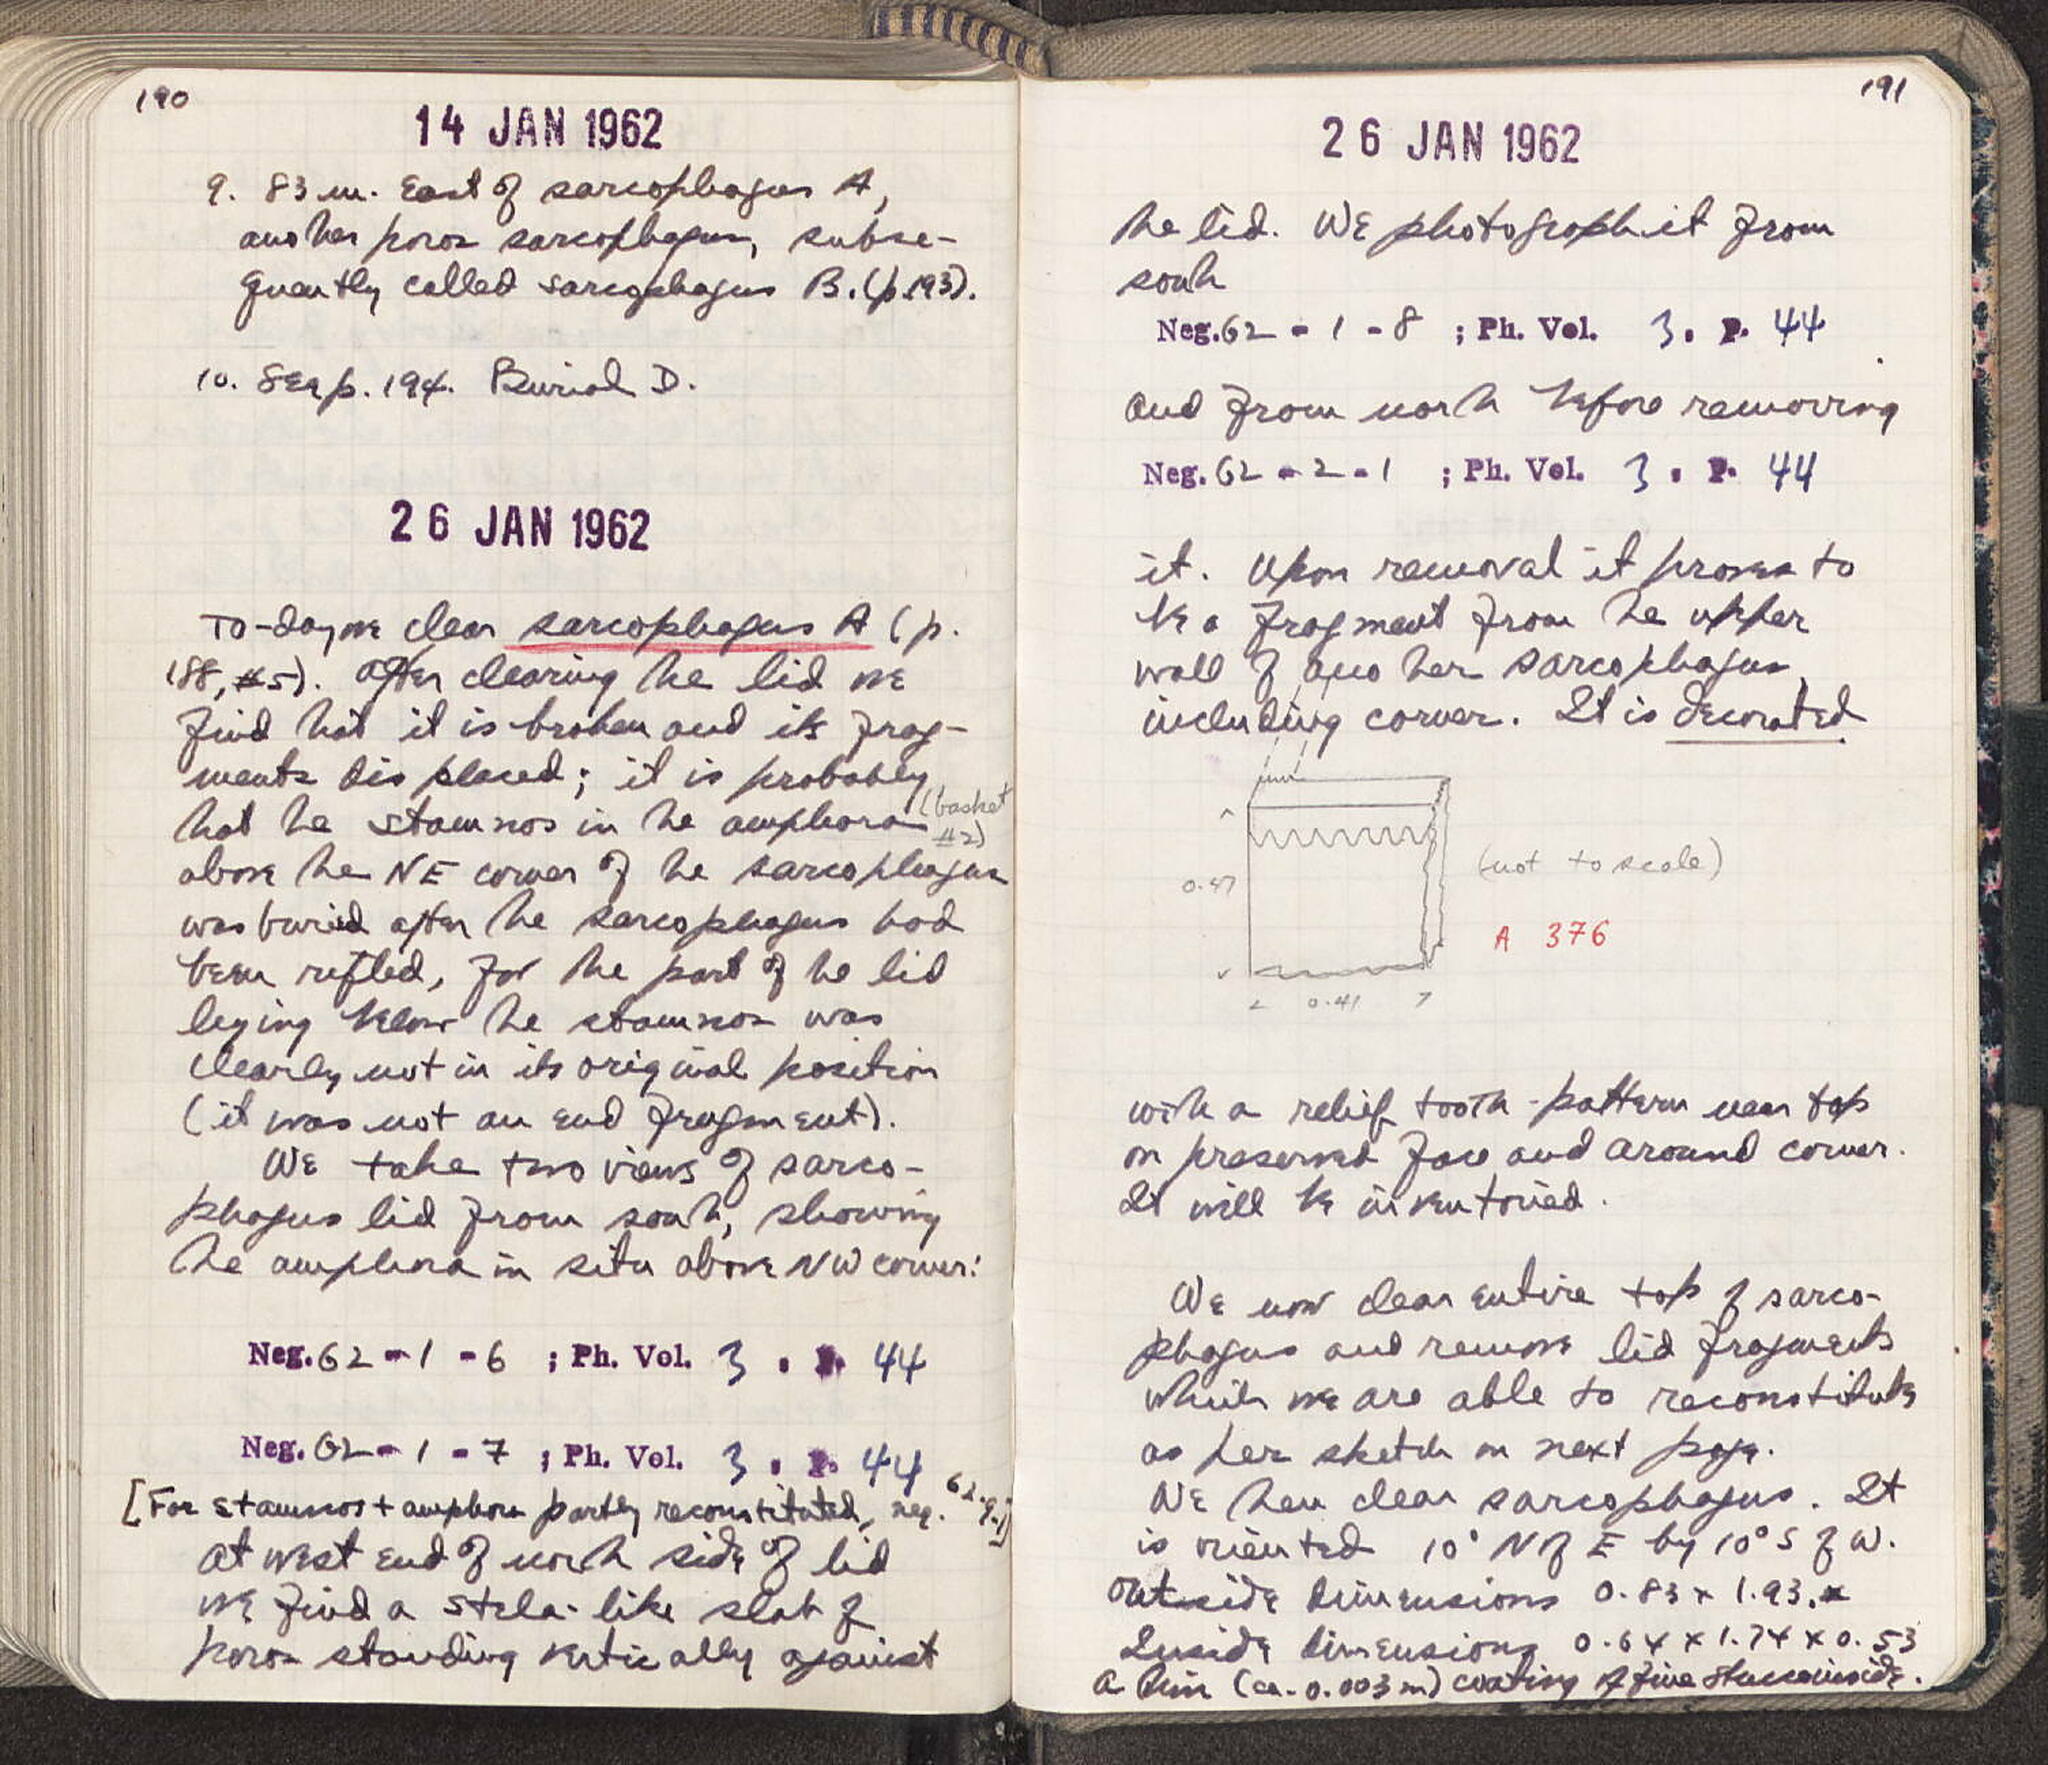 190
14 JAN 1962
9. 83 m. East of sarcophagus A,
another poros sarcophagus, subse-
quently called sarcophagus B. (p.193).
10. See p. 194. Burial D.
26 JAN 1962
To-day we clear sarcophagus A (p.
188, #5). After clearing the lid we
find that it is broken and its frag-
ments displaced; it is probably
that the stamnos in the amphora (basket #2)
above the NE corner of the sarcophagus
was buried after the sarcophagus had
been rifled, for the part of the lid
lying below the stamnos was
clearly not in its original position
(it was not an end fragment).
We take two views of sarco-
phagus lid from south, showing
the amphora in situ above NW corner:
Neg. 62-1-6 ; Ph. Vol. 3. p. 44
Neg. 62-1-7 ; Ph. Vol. 3. p. 44
[For stamnos + amphora partly reconstituted, neg. 62-9-1]
At west end of north side of lid
we find a stela-like slab of
poros standing vertically against
191
26 JAN 1962
the lid. We photograph it from
south
Neg. 62-1-8 ; Ph. Vol. 3. p. 44
and from north before removing
Neg. 62-2-1 ; Ph. Vol. 3. p. 44
it. Upon removal it proves to
be a fragment from the upper
wall of another sarcophagus,
including corner. It is decorated
0.47
(not to scale)
A 376
0.41
with a relief tooth-pattern near top
on preserved face and around corner.
It will be inventoried.
We now clear entire top of sarco-
phagus and remove lid fragments
which we are able to reconstitute
as per sketch on next page.
We then clear sarcophagus. It
is oriented 10° N of E by 10° S of W.
Outside dimensions 0.83 x 1.93.
Inside dimensions 0.64 x 1.74 x 0.53
A thin (ca. 0.003 m) coating of fine stucco inside.